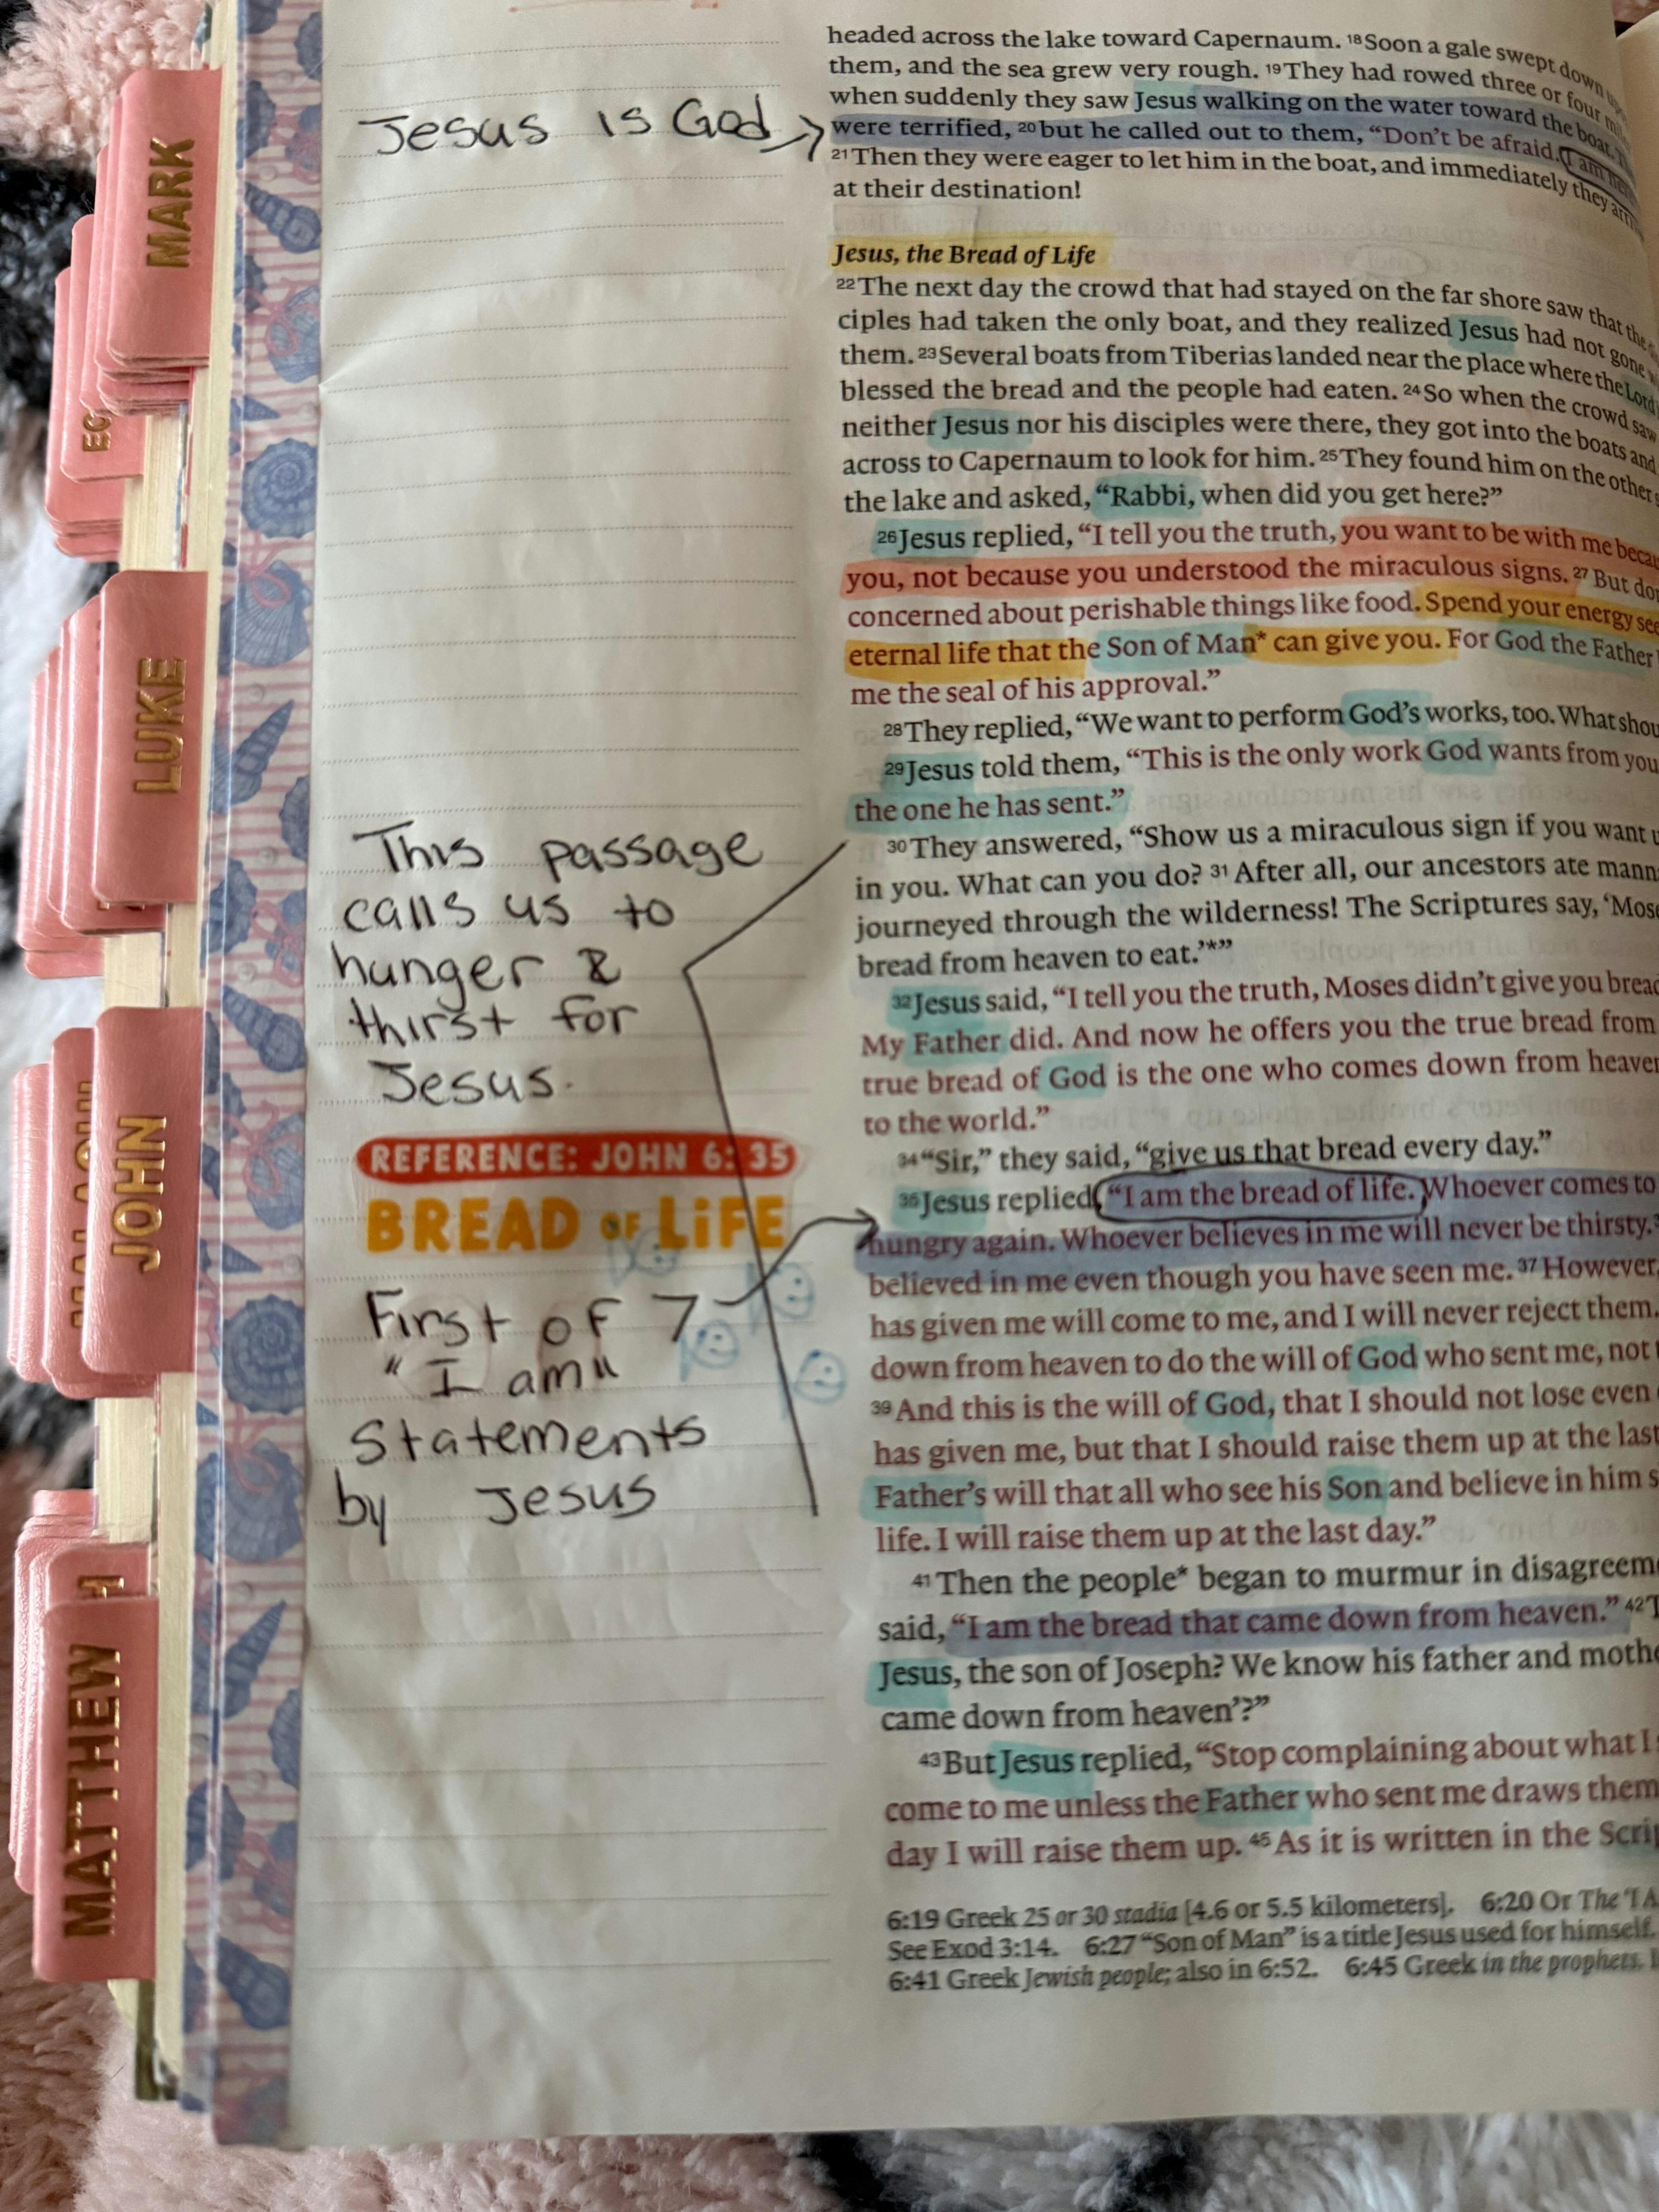 MARK
EC
LUKE
JOHN
MATTHEW
H
Jesus is God
This passage
calls us to
hunger &
thirst for
Jesus.
REFERENCE: JOHN 6:35
BREAD OF LiFE
First of 7
"I am"
Statements
by Jesus
headed across the lake toward Capernaum. 18 Soon a gale swept down
them, and the sea grew very rough. 19 They had rowed three or four
when suddenly they saw Jesus walking on the water toward the boat.
were terrified, 20 but he called out to them, “Don’t be afraid. I am
21 Then they were eager to let him in the boat, and immediately they
at their destination!
Jesus, the Bread of Life
22 The next day the crowd that had stayed on the far shore saw that the
ciples had taken the only boat, and they realized Jesus had not gone
them. 23 Several boats from Tiberias landed near the place where the Lord
blessed the bread and the people had eaten. 24 So when the crowd saw
neither Jesus nor his disciples were there, they got into the boats and
across to Capernaum to look for him. 25 They found him on the other
the lake and asked, “Rabbi, when did you get here?”
26 Jesus replied, “I tell you the truth, you want to be with me beca
you, not because you understood the miraculous signs. 27 But do
concerned about perishable things like food. Spend your energy see
eternal life that the Son of Man* can give you. For God the Father
me the seal of his approval.”
28 They replied, “We want to perform God’s works, too. What shou
29 Jesus told them, “This is the only work God wants from you
the one he has sent.”
30 They answered, “Show us a miraculous sign if you want
in you. What can you do? 31 After all, our ancestors ate mann
journeyed through the wilderness! The Scriptures say, ‘Mose
bread from heaven to eat.’*”
32 Jesus said, “I tell you the truth, Moses didn’t give you bread
My Father did. And now he offers you the true bread from
true bread of God is the one who comes down from heaven
to the world.”
34 “Sir,” they said, “give us that bread every day.”
35 Jesus replied, “I am the bread of life. Whoever comes to
hungry again. Whoever believes in me will never be thirsty.
believed in me even though you have seen me. 37 However,
has given me will come to me, and I will never reject them.
down from heaven to do the will of God who sent me, not
39 And this is the will of God, that I should not lose even
has given me, but that I should raise them up at the last
Father’s will that all who see his Son and believe in him s
life. I will raise them up at the last day.”
41 Then the people* began to murmur in disagreem
said, “I am the bread that came down from heaven.” 42 T
Jesus, the son of Joseph? We know his father and moth
came down from heaven’?”
43 But Jesus replied, “Stop complaining about what I
come to me unless the Father who sent me draws them
day I will raise them up. 45 As it is written in the Scrip
6:19 Greek 25 or 30 stadia [4.6 or 5.5 kilometers]. 6:20 Or The ‘I A
See Exod 3:14. 6:27 “Son of Man” is a title Jesus used for himself.
6:41 Greek Jewish people; also in 6:52. 6:45 Greek in the prophets.